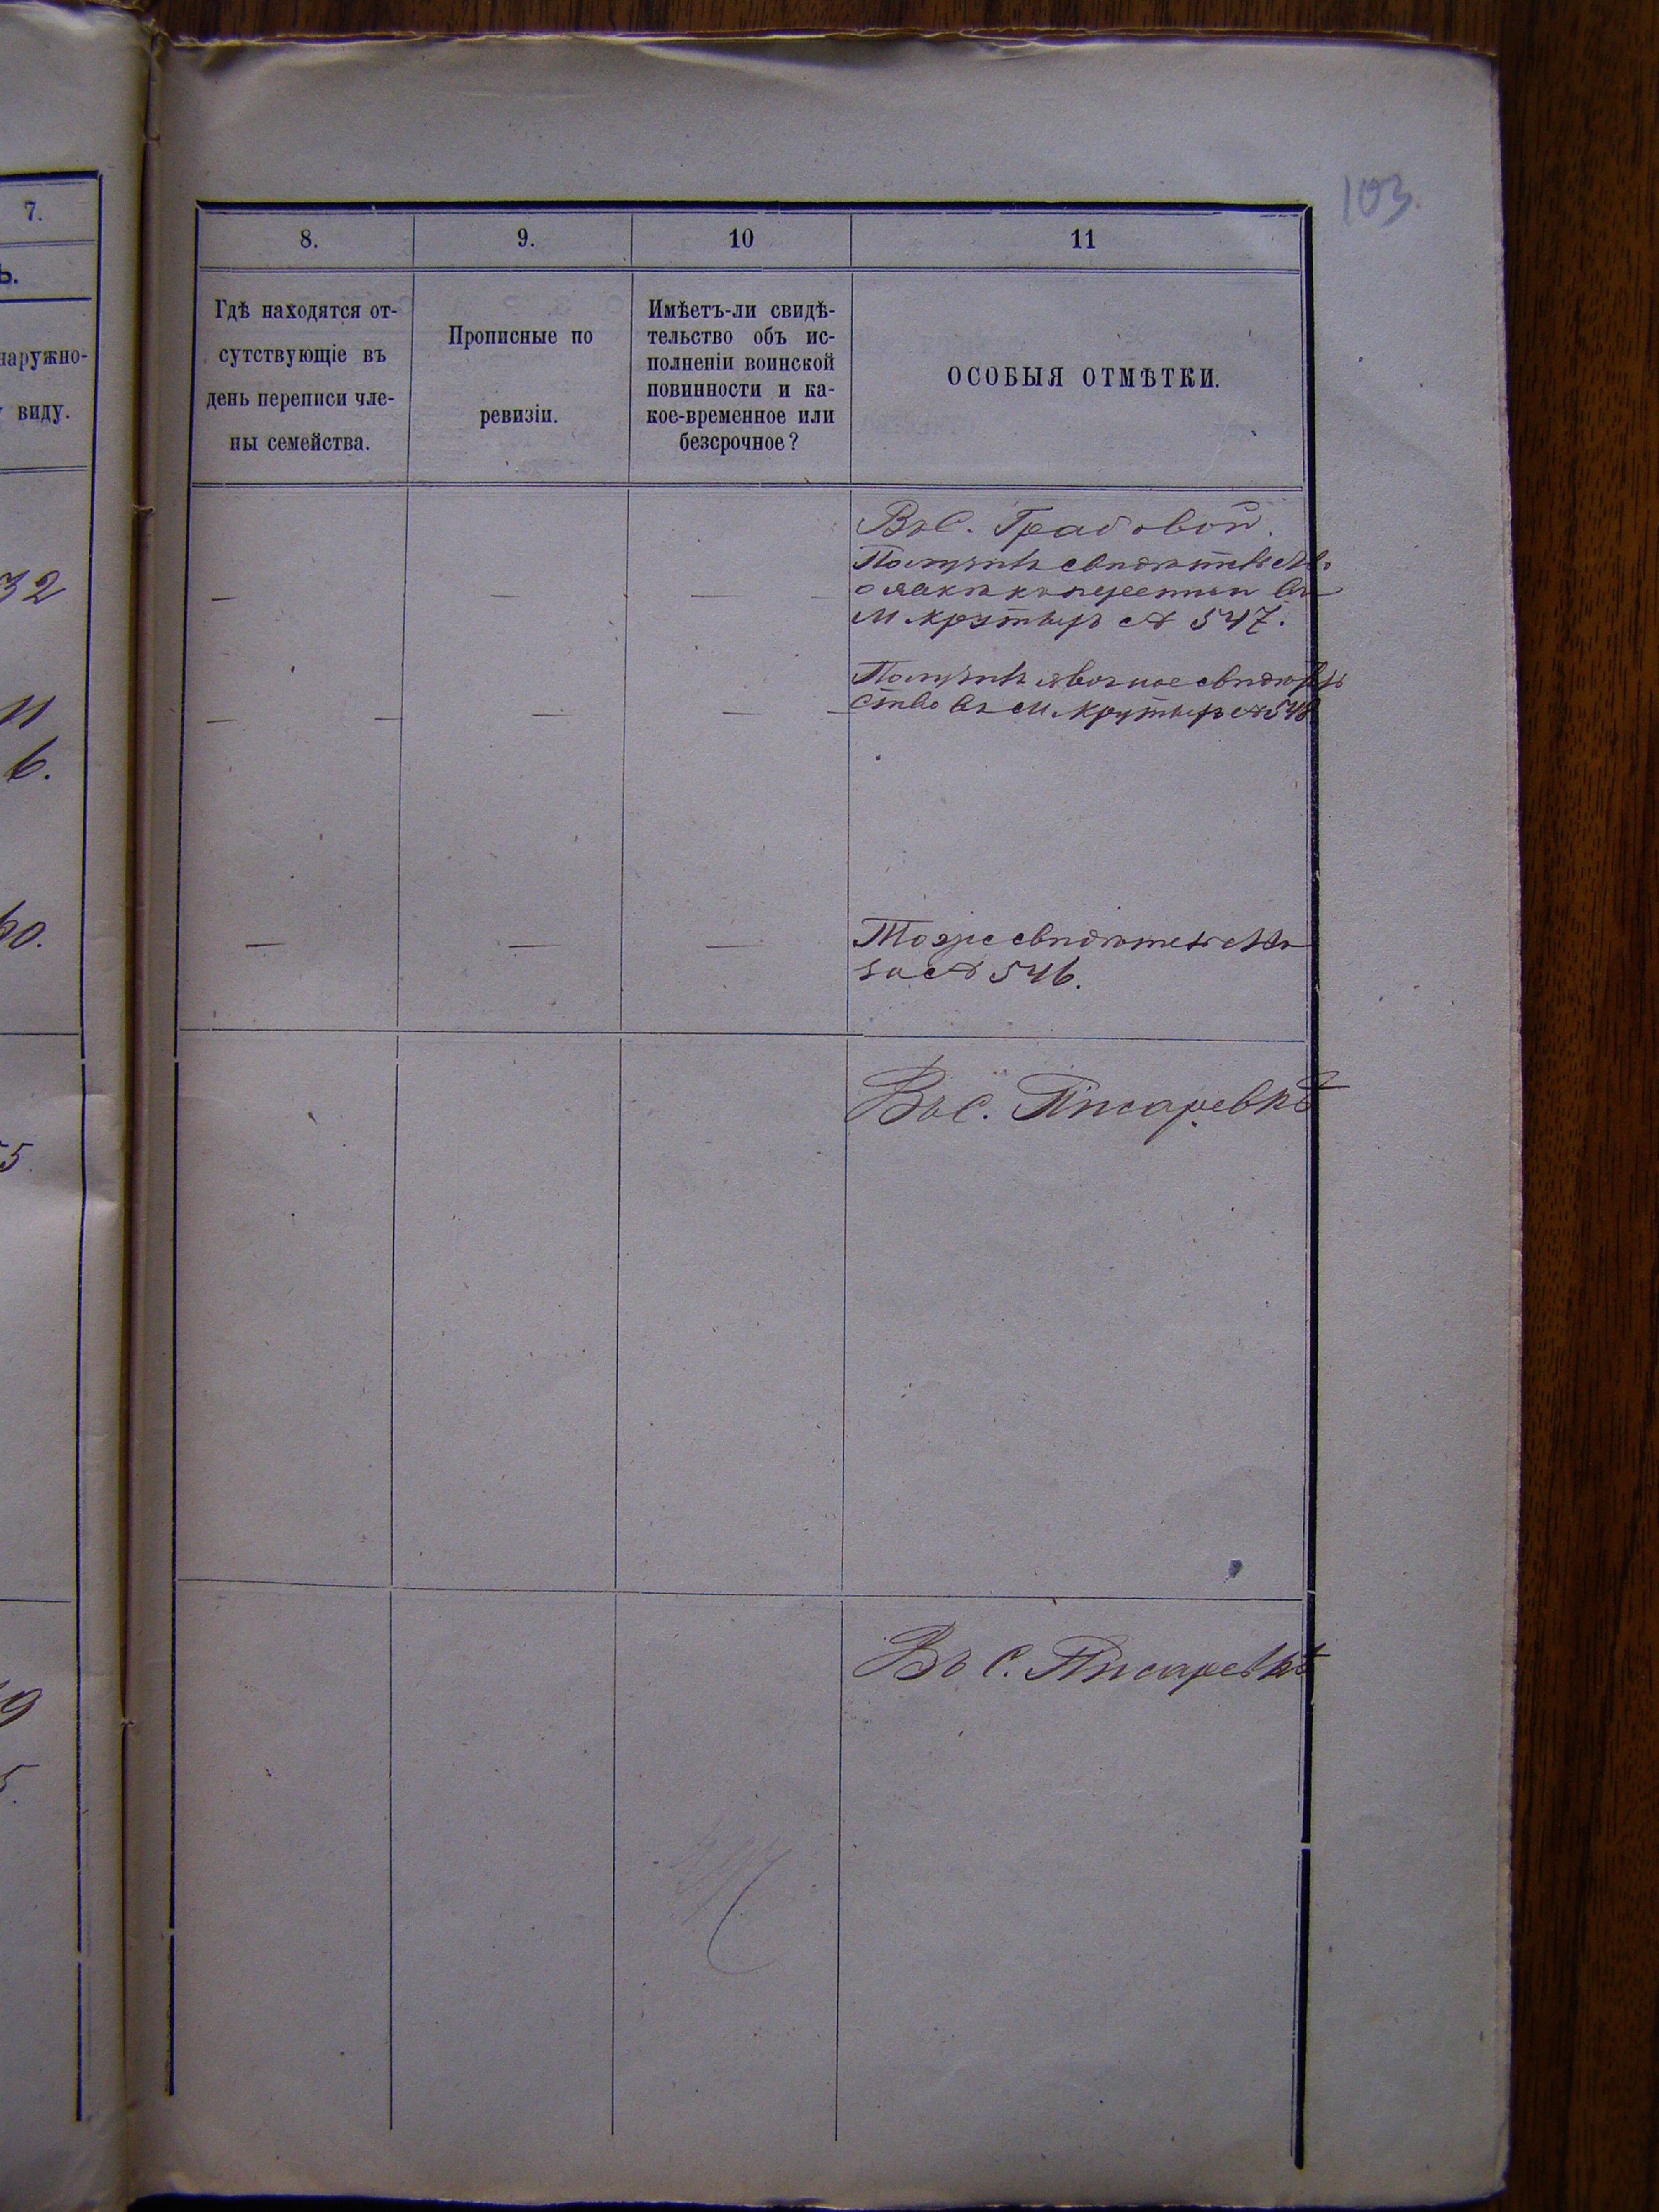 103.
7.
ь.
наружно-
виду.
32
11
6.
60.
5.
9
5.
8.
9.
10
11
Гдѣ находятся от-
сутствующіе въ
день переписи чле-
ны семейства.
Прописные по
ревизіи.
Имѣетъ-ли свидѣ-
тельство объ ис-
полненіи воинской
повинности и ка-
кое-временное или
безсрочное?
ОСОБЫЯ ОТМѢТКИ.
Въ С. Грабовой.
Получилъ свидѣтельство
о явкѣ къ переписи въ
М. Крутыхъ № 547.
Получилъ явочное свидѣтель
ство въ М. Крутыхъ № 548
Тоже свидѣтельство
за № 546.
Въ С. Писаревкѣ
Въ С. Писаревкѣ